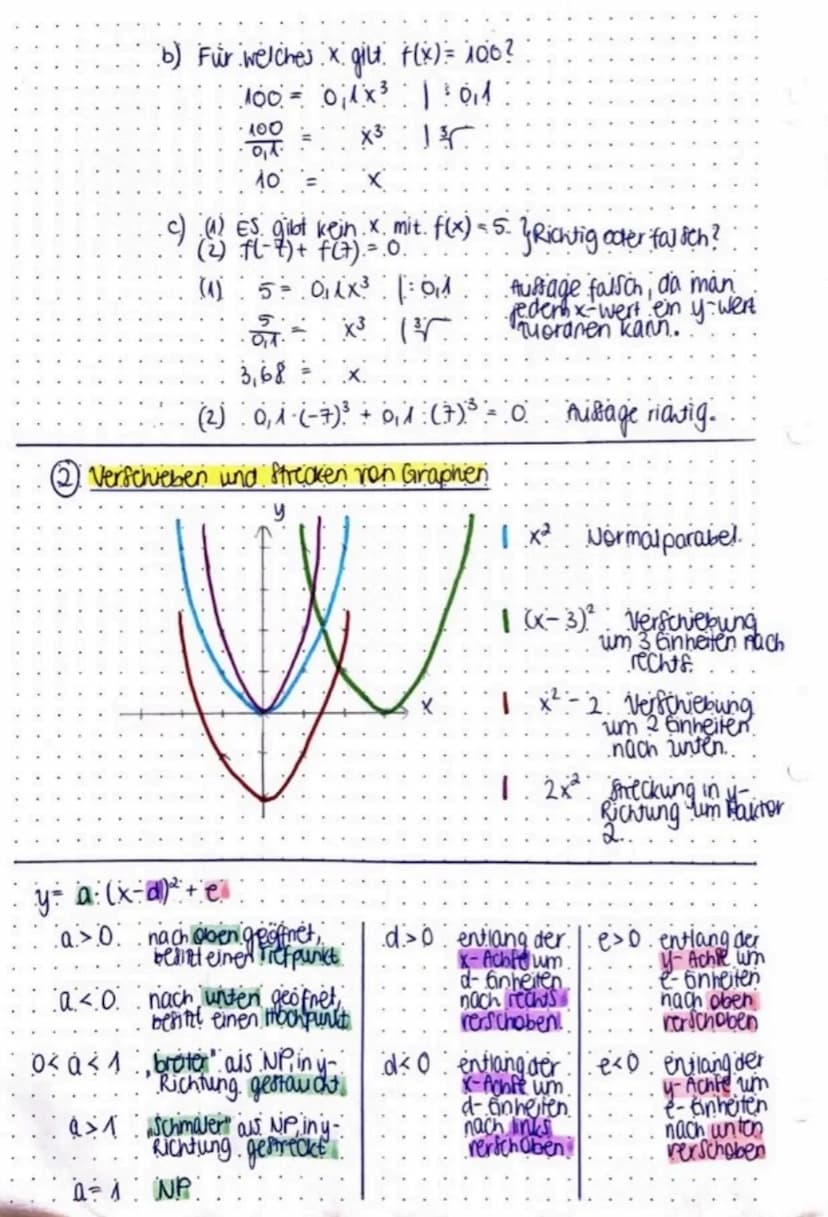 b) Für welches x gilt f(x) = 100?
100 = 0,1x³ | : 0,1
100/0,1 = x³ | ∛
10 = x
c) (1) Es gibt kein x mit f(x) = 5. } Richtig oder falsch?
(2) f(-7) + f(7) = 0
(1) 5 = 0,1x³ | : 0,1 Aussage falsch, da man
jedem x-Wert ein y-Wert
5/0,1 = x³ | ∛ zuordnen kann.
3,68 = x
(2) 0,1·(-7)³ + 0,1·(7)³ = 0 Aussage richtig.
② Verschieben und Strecken von Graphen
y
x
x² Normalparabel
(x-3)² Verschiebung
um 3 Einheiten nach
rechts.
x² - 2 Verschiebung
um 2 Einheiten
nach unten.
2x² Streckung in y-
Richtung um Faktor
2.
y = a·(x-d)² + e
a > 0 nach oben geöffnet,
besitzt einen Tiefpunkt
a < 0 nach unten geöfnet,
besitzt einen Hochpunkt
0 < a < 1 „breiter" als NP, in y-
Richtung gestaucht
a > 1 „Schmaler" als NP, in y-
Richtung gestreckt
a = 1 NP
d > 0 entlang der
x-Achse um
d-Einheiten
nach rechts
verschoben
d < 0 entlang der
x-Achse um
d-Einheiten
nach links
verschoben
e > 0 entlang der
y-Achse um
e-Einheiten
nach oben
verschoben
e < 0 entlang der
y-Achse um
e-Einheiten
nach unten
verschoben